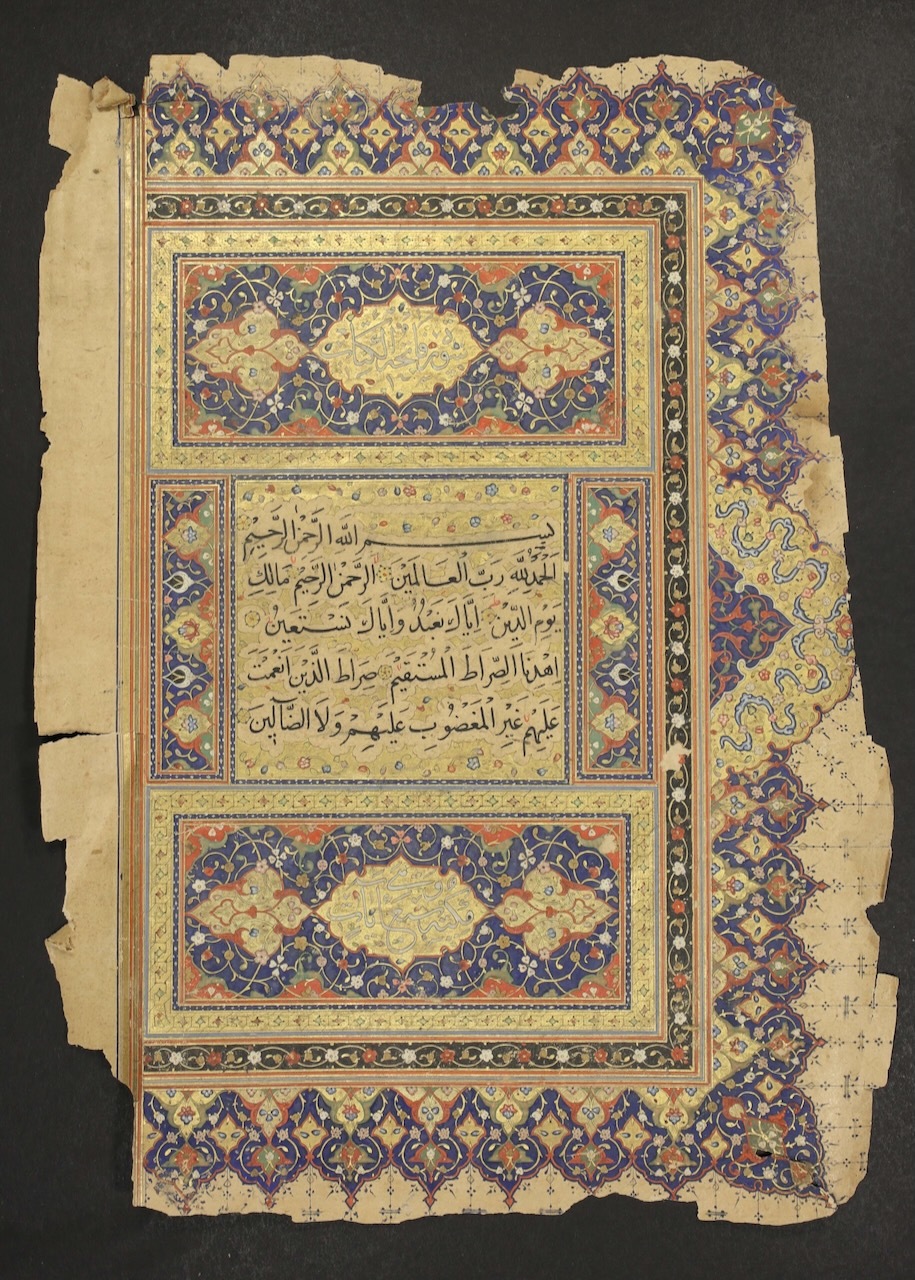 سورة فاتحة الكتاب
بِسْمِ اللهِ الرَّحْمٰنِ الرَّحِيْمِ
اَلْحَمْدُ لِلّٰهِ رَبِّ الْعَالَمِيْنَ الرَّحْمٰنِ الرَّحِيْمِ مَالِكِ
يَوْمِ الدِّيْنِ اِيَّاكَ نَعْبُدُ وَاِيَّاكَ نَسْتَعِيْنُ
اِهْدِنَا الصِّرَاطَ الْمُسْتَقِيْمَ صِرَاطَ الَّذِيْنَ اَنْعَمْتَ
عَلَيْهِمْ غَيْرِ الْمَغْضُوْبِ عَلَيْهِمْ وَلَا الضَّآلِّيْنَ
سبع ايات